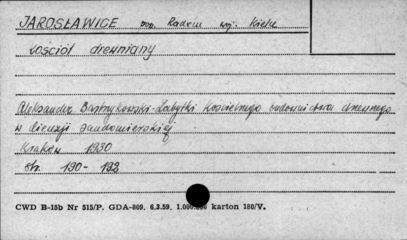 JAROSŁAWICE pow. Radom woj: Kielce
kościół drewniany
Aleksander Bastrzykowski - Zabytki kościelnego budownictwa drzewnego
w diecezji sandomierskiej
Kraków 1930
str. 190 - 192
CWD B-15b Nr 515/P. GDA-809. 6.3.59. 1.000.000 karton 180/V.